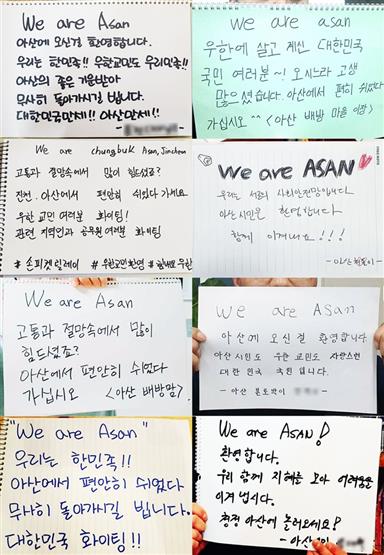 We are Asan
아산에 오신걸 환영합니다.
우리는 한민족!! 우한교민도 우리민족!!
아산의 좋은 기운받아
무사히 돌아가시길 빕니다.
대한민국만세!! 아산만세!!
We are asan
우한에 살고 계신 대한민국
국민 여러분~! 오시느라 고생
많으셨습니다. 아산에서 편히 쉬었다
가십시오 ^^ <아산 배방 마을 이장>
We are chungbuk Asan, Jincheon
고통과 절망속에서 많이 힘드셨죠?
진천. 아산에서 편안히 쉬었다 가세요.
우한 교민 여러분 화이팅!
관련 지역민과 공무원 여러분 화이팅
#손피켓릴레이 #우한교민환영
We are ASAN
우리는 서로의 사회안전망입니다
아산시민은 환영합니다
함께 이겨내요!!!
We are Asan
고통과 절망속에서 많이
힘드셨죠?
아산에서 편안히 쉬었다
가십시오 <아산 배방맘>
We are Asan
아산에 오신걸 환영합니다
아산시민도 우한교민도 자랑스런
대한민국 국민입니다.
- 아산 본토박이
"We are Asan"
우리는 한민국!!
아산에서 편안히 쉬였다
무사히 돌아가시길 빕니다.
대한민국 화이팅!!
We are ASAN!
환영합니다.
우리 함께 지혜를 모아 어려움을
이겨냅시다.
청정 아산에 놀러오세요!